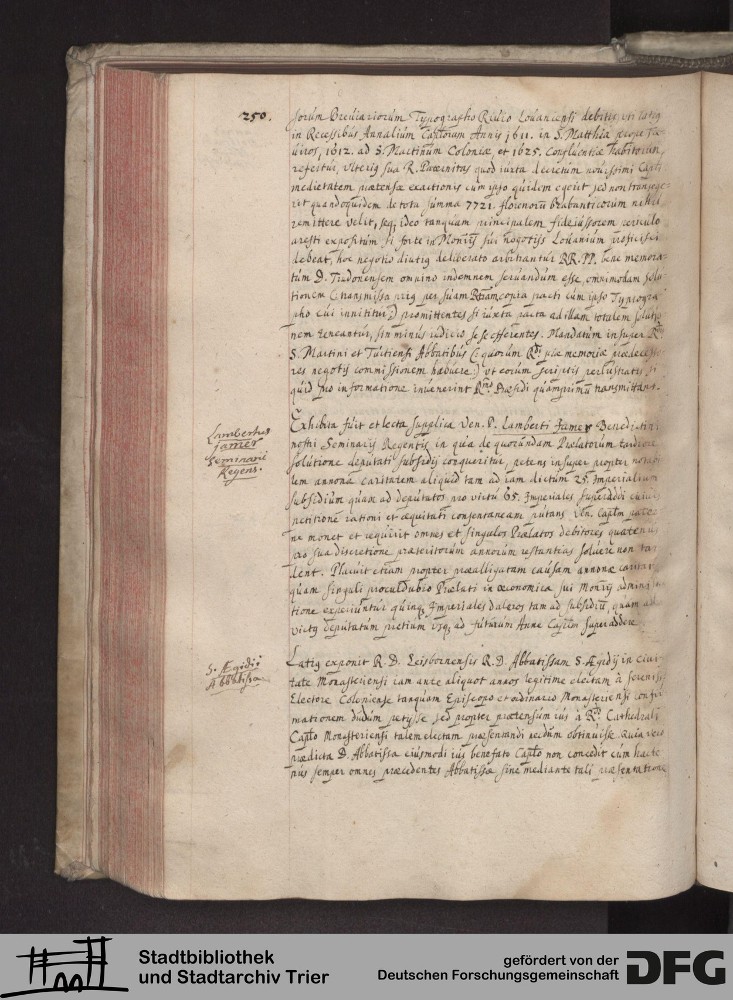 250.
sorum Breviariorum Typographo Rivio Lovaniensi debitis, uti latius
in Recessibus Annalium Captorum Annis 1611. in S. Matthia prope
viros, 1612. ad S. Martinum Coloniæ, et 1625. Confluentiæ habitorum,
refertur, Ulterius sua R. Paternitas quod iuxta decretum novissimi Captli
medietatem prætensæ exactionis cum ipso quidem egerit sed non transege
rit quandoquidem de tota summa 7721. florenorum brabanticorum nihil
remittere velit, seq, ideo tanquam principalem fideiussorem periculo
aresti expositum si forte in Monrij sui negotijs Lovanium proficisci
debeat, hoc negotio diutius deliberato arbitrantur RR. PP. bene memora
tum D. Trudonensem omnino indemnem servandum esse, omnimodam solu
tionem (transmissa prius per suam copia pacti cum ipso Typogra
pho cui innititur) promittentes si iuxta pacta ad illam totalem solutio
nem teneantur, sin minus iudicio se se offerentes. Mandatum insuper
S. Martini et Tuitiensi Abbatibus (: quorum piæ memoriæ prædecesso
res negotij commissionem habuere:) ut eorum scriptis perlustratis, si
quid pro informatione invenerint Præsidi quamprimum transmittant.
Lambertus
Jamer
Seminarii
Regens.
Exhibita fuit et lecta supplica Ven. P. Lamberti Jamer Benedictini
nostri Seminarij Regentis in qua de quorundam Prælatorum tardiore
solutione deputati subsidij conqueritur, petens insuper propter notabi
lem annonæ caritatem aliquid tam ad iam dictum 25. Imperialium
subsidium quam ad deputatos pro victu 65. Imperiales superaddi cuius
petitionem rationi et æquitati consentaneam putans Ven. Captlm pater
ne monet et requirit omnes et singulos Prælatos debitores quatenus
pro sua discretione præteritorum annorum restantias solvere non tar
dent. Placuit etiam propter præallegatam causam annonæ caritatis
quam singuli proculdubio Prælati in œconomica sui Monrij administra
tione experiuntur quinque Imperiales daleros tam ad subsidium, quam ad
victus deputatum pretium usque ad futurum Anne Captlm superaddere.
S. Ægidii
Abbatissa
Latius exponit R. D. Leisbornensis R. D. Abbatissam S. Ægidij in civi
tate Monasteriensi iam ante aliquot annos legitime electam à Sereniss.
Electore Coloniense tanquam Episcopo et ordinario Monasteriensi confir
mationem dudum petijsse sed propter prætensum ius à Cathedralis
Captlo Monasteriensi talem electam præsentandi necdum obtinuisse. Quia vero
prædicta D. Abbatissa eiusmodi ius benefato Captlo non concedit cum hacte
nus semper omnes præcedentes Abbatissæ sine mediante tali præsentatione
Stadtbibliothek
und Stadtarchiv Trier
gefördert von der
Deutschen Forschungsgemeinschaft
DFG